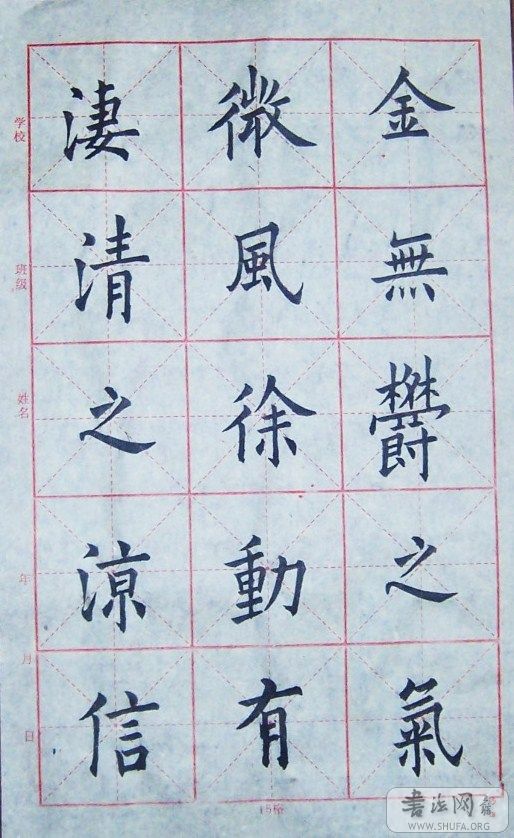 金無欝之氣
微風徐動有
淒清之涼信
学校
班级
姓名
年
月
日
15格
书法网
WWW.SHUFA.ORG